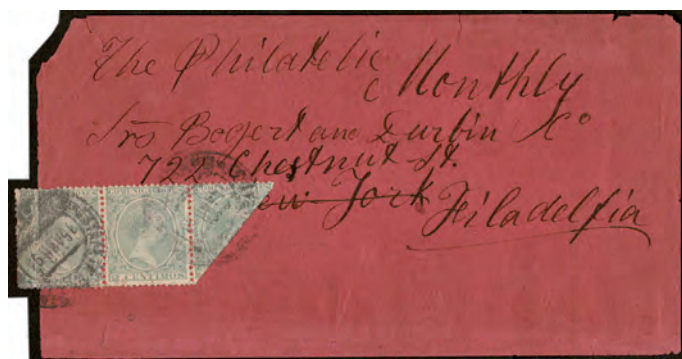 The Philatelic
Monthly
Srs Bogert and Durbin Co
722 Chestnut St.
New York
Filadelfia
2 CENTIMOS